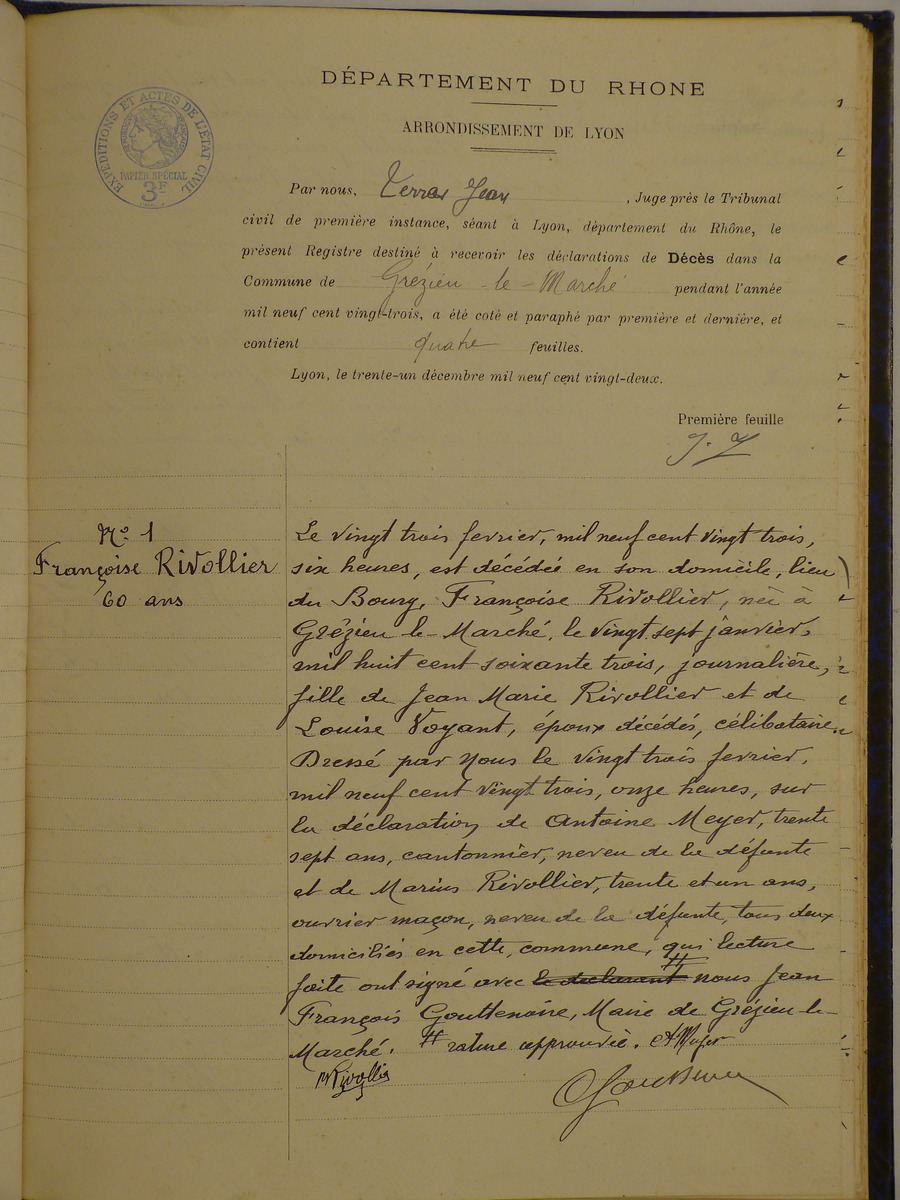 DÉPARTEMENT DU RHONE
ARRONDISSEMENT DE LYON
EXPÉDITIONS ET ACTES DE L'ÉTAT CIVIL
PAPIER SPÉCIAL
3F
Par nous, Terras Jean, Juge près le Tribunal
civil de première instance, séant à Lyon, département du Rhône, le
présent Registre destiné à recevoir les déclarations de Décès dans la
Commune de Grézieu-le-Marché pendant l'année
mil neuf cent vingt-trois, a été coté et paraphé par première et dernière, et
contient quatre feuilles.
Lyon, le trente-un décembre mil neuf cent vingt-deux.
Première feuille
No 1
Françoise Rivollier
60 ans
Le vingt trois fevrier, mil neuf cent vingt trois,
six heures, est décédée en son domicile, lieu
du Bourg, Françoise Rivollier, née à
Grézieu-le-Marché, le vingt sept janvier,
mil huit cent soixante trois, journalière,
fille de Jean Marie Rivollier et de
Louise Voyant, époux décédés, célibataire.
Dressé par Nous le vingt trois fevrier,
mil neuf cent vingt trois, onze heures, sur
la déclaration de Antoine Meyer, trente
sept ans, cantonnier, neveu de la défunte
et de Marius Rivollier, trente et un ans,
ouvrier maçon, neveu de la défunte, tous deux
domiciliés en cette commune, qui lecture
faite ont signé avec le déclarant nous Jean
François Gouttenoire, Maire de Grézieu-le-
Marché. # rature approuvée. A Meyer
M Rivollier